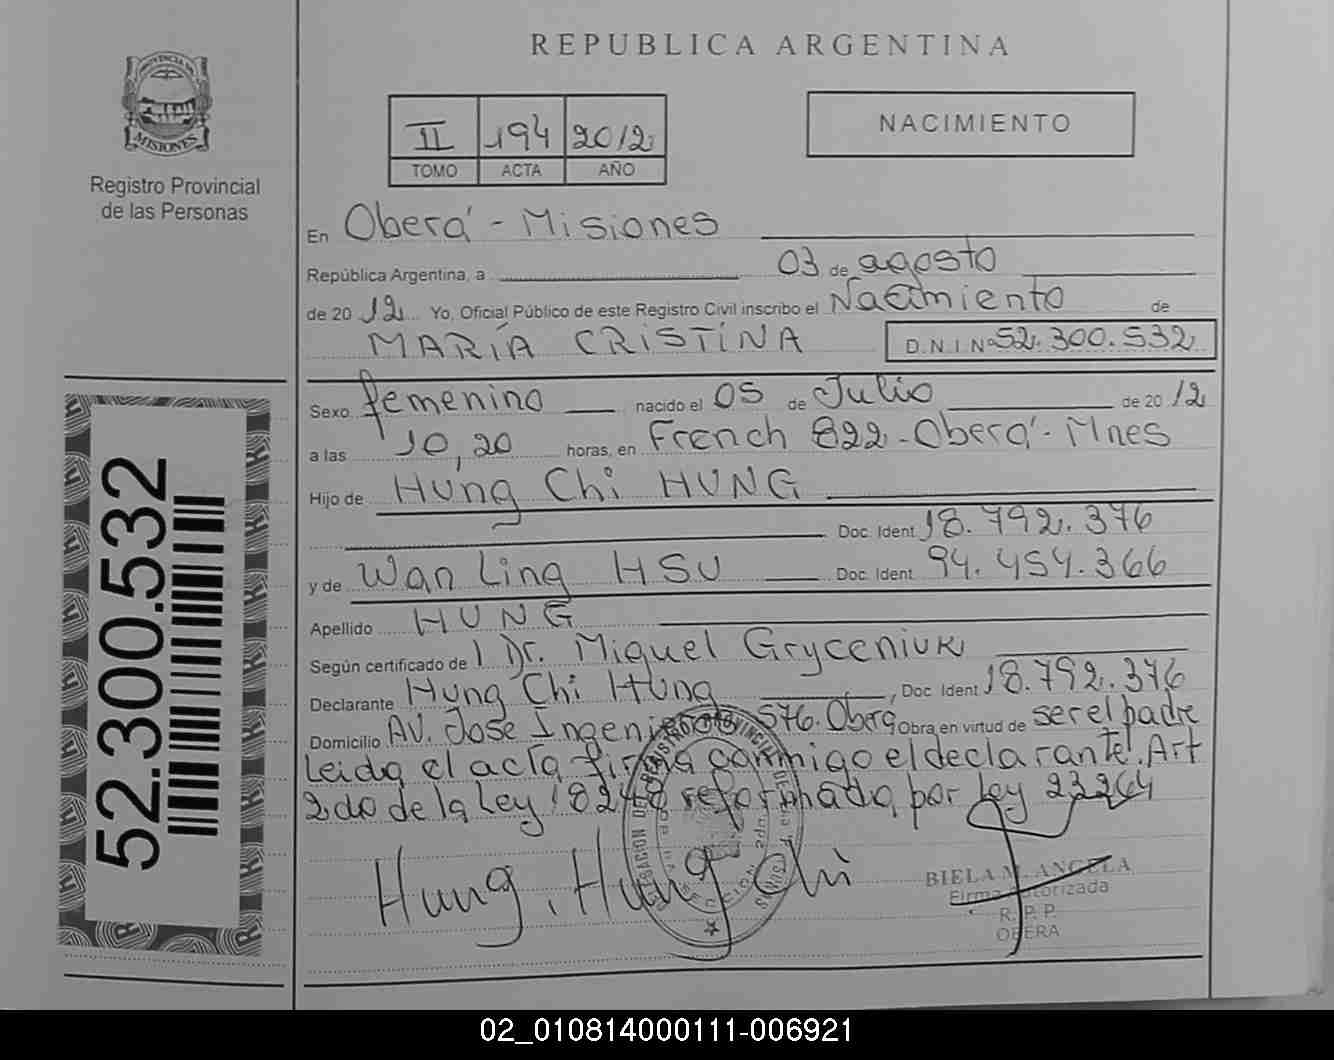 REPUBLICA ARGENTINA
PROVINCIA DE
MISIONES
Registro Provincial
de las Personas
II 194 2012
TOMO ACTA AÑO
NACIMIENTO
En Oberá - Misiones
República Argentina, a 03 de agosto
de 2012 Yo, Oficial Público de este Registro Civil inscribo el Nacimiento de
MARÍA CRISTINA D.N.I. Nº 52.300.532
Sexo femenino nacido el 05 de Julio de 2012
a las 10,20 horas, en French 822 - Oberá - Mnes
Hijo de Hung Chi HUNG
Doc. Ident 18.792.376
y de Wan Ling HSU Doc. Ident 94.454.366
Apellido HUNG
Según certificado de l Dr. Miguel Gryceniuk
Declarante Hung Chi Hung, Doc. Ident 18.792.376
Domicilio AV. José Ingenieros 576. Oberá Obra en virtud de ser el padre
Leida el acta firma conmigo el declarante. Art
2do de la Ley 18248 reformada por Ley 23264
Hung, Hung Chi
BIELA M. ANGELA
Firma Autorizada
R. P. P.
OBERA
52.300.532
02_010814000111-006921